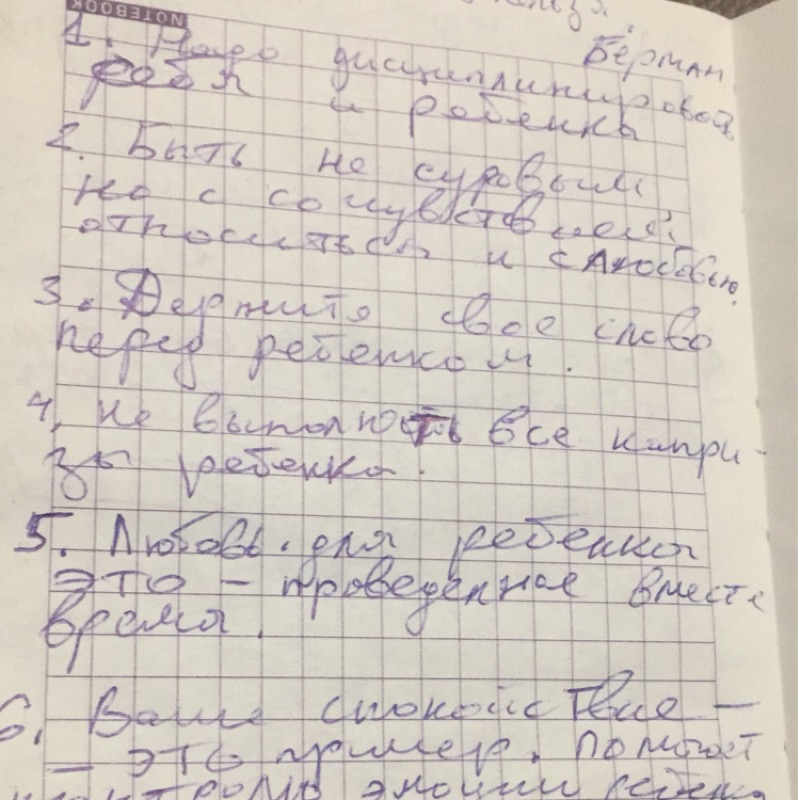 NOTEBOOK
Берман
1. Надо дисциплинировать
себя и ребенка
2. Быть не суровым,
но с сочувствием
относиться и с любовью.
3. Держите свое слово
перед ребенком.
4. Не выполнять все капри-
зы ребенка.
5. Любовь для ребенка
это - проведенное вместе
время.
6. Ваше спокойствие -
- это пример. Помогает
контролю эмоции ребенка